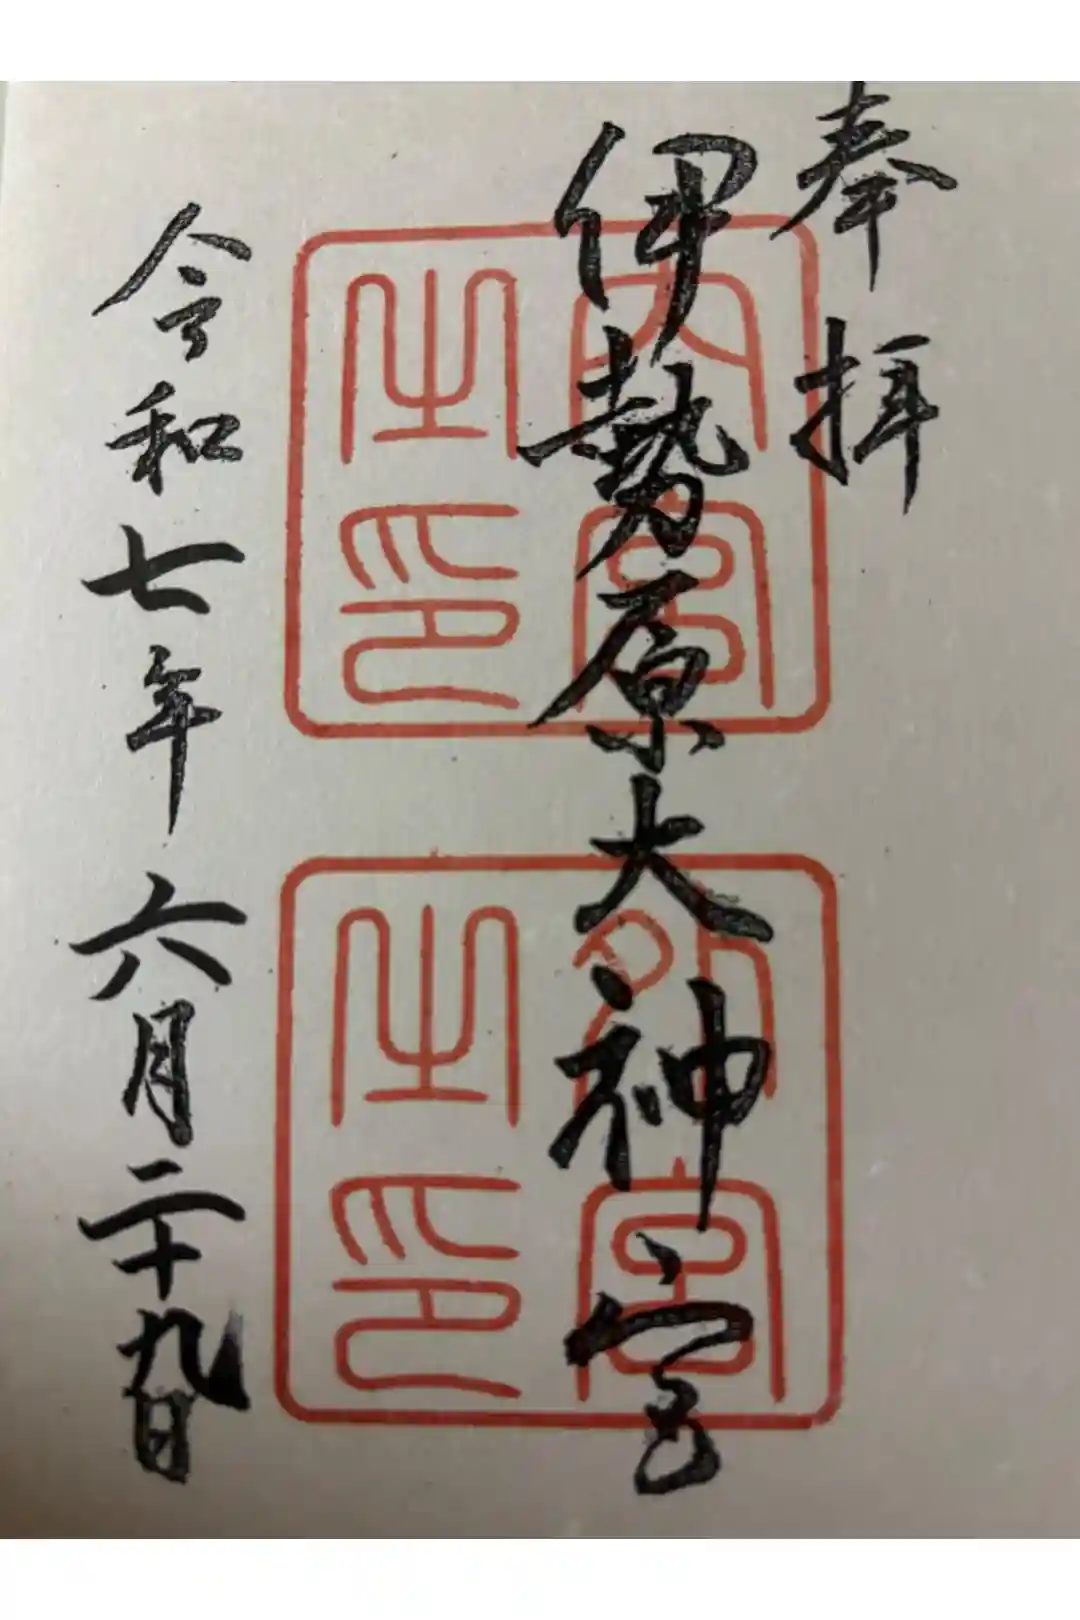 奉拝
伊勢原大神宮
内宮之印
外宮之印
令和七年六月二十九日